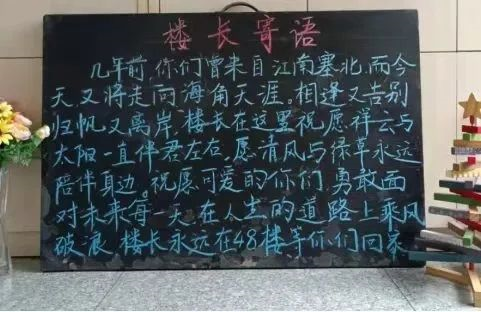 楼长寄语
几年前,你们曾来自江南塞北,而今
天,又将走向海角天涯。相逢又告别
归帆又离岸,楼长在这里祝愿祥云与
太阳一直伴君左右,愿清风与绿草永远
陪伴身边。祝愿可爱的你们,勇敢面
对未来每一天,在人生的道路上乘风
破浪,楼长永远在48楼等你们回家